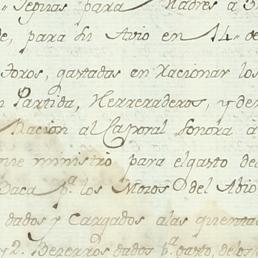 para Madres a
de, para su Avio en 14. de
Toros, gastadas en Racionar los
Partida, Herreraderos, y de
Racion al Caporal Sonora a
ministro para el gasto del
Baca p.ª los Mozos del Abio
dados y Cargados a las quentas
y 2. Bezerros dados p.ª gasto, de los